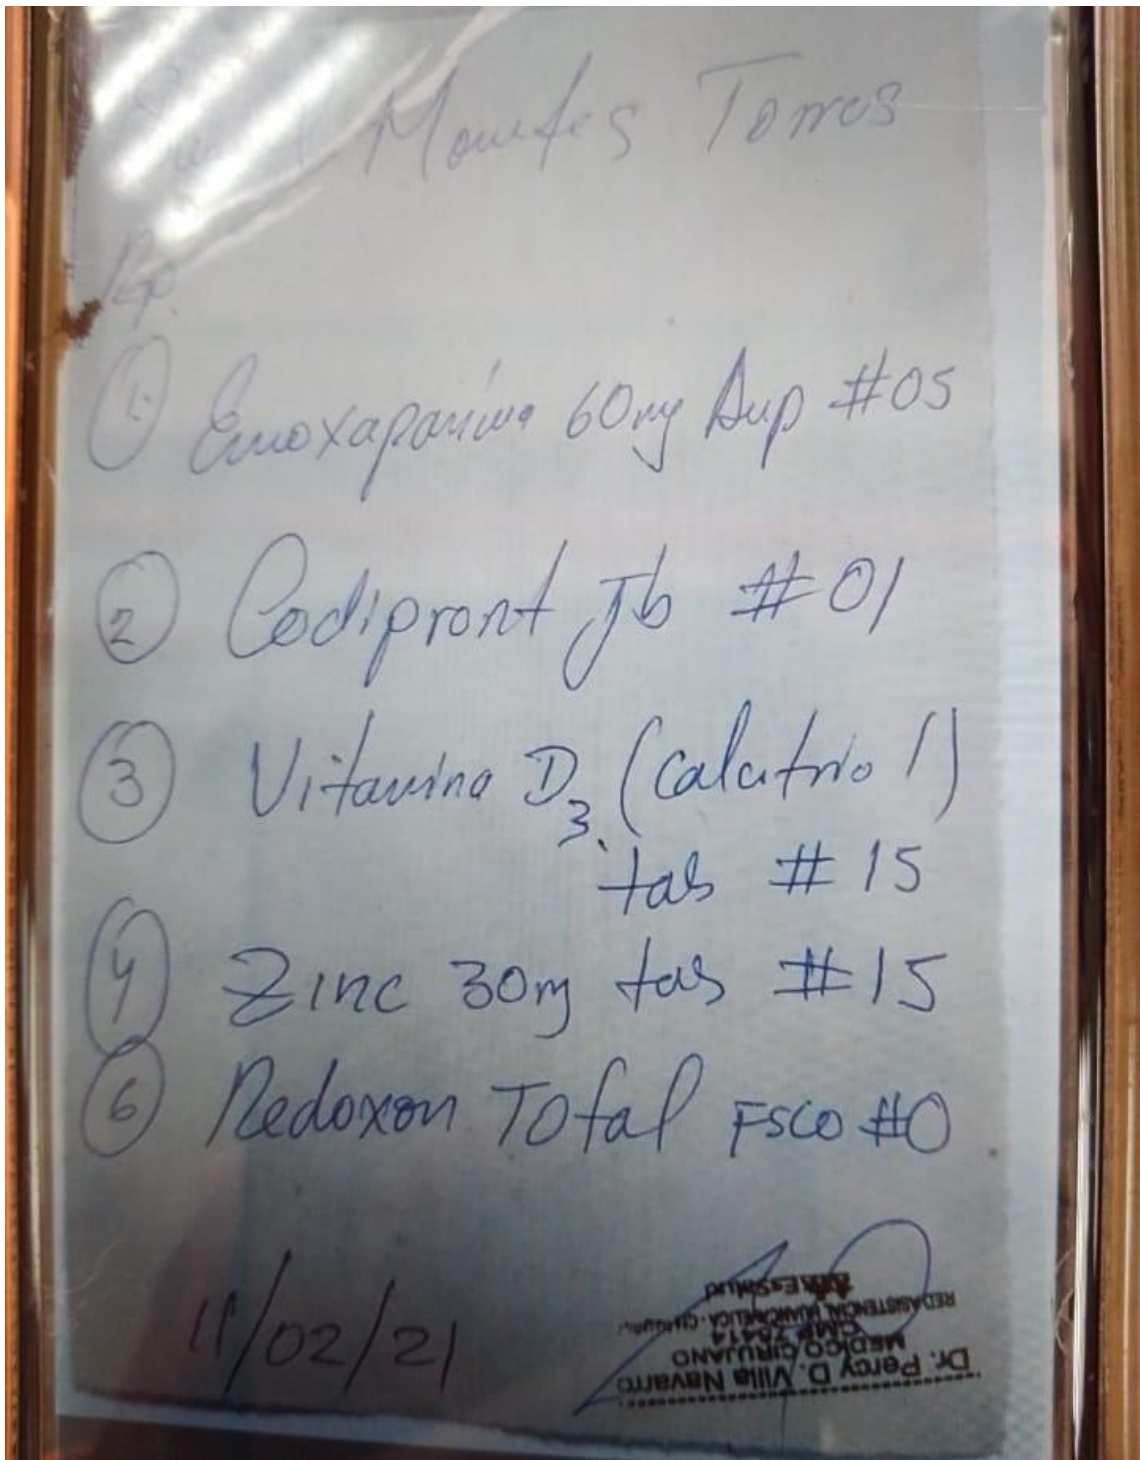 Montes Torres
Rp.
1. Enoxaparina 60mg Amp #05
2 Codipront Jb #01
3 Vitamina D3. (Calcitriol)
tab #15
4 Zinc 30mg tab #15
6 Redoxon Total FSCO #0
11/02/21
Dr. Percy D. Villa Navarro
MEDICO CIRUJANO
CMP 75414
RED ASISTENCIAL HUANCAVELICA
EsSalud